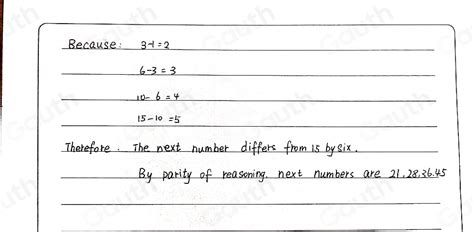 Because: 3-1=2
6-3=3
10-6=4
15-10=5
Therefore. The next number differs from 15 by six.
By parity of reasoning. next numbers are 21.28.36.45